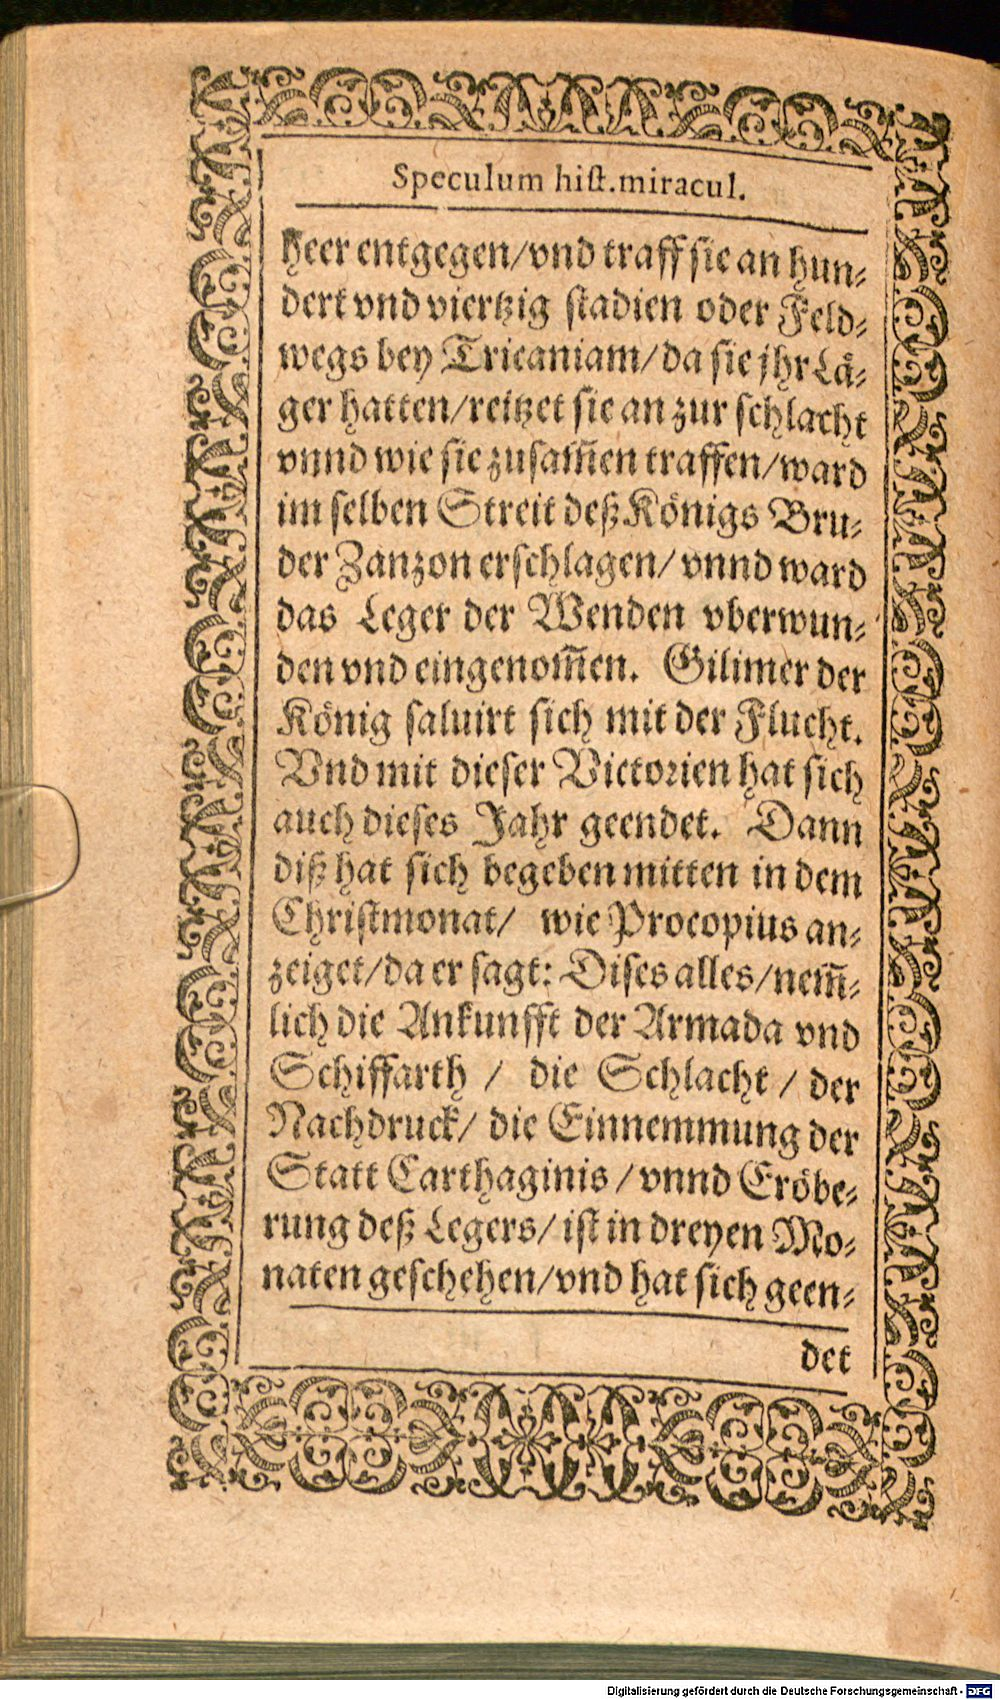 Speculum hist.miracul.
heer entgegen/vnd traff sie an hun-
dert vnd viertzig stadien oder Feld-
wegs bey Tricaniam/da sie jhr Lä-
ger hatten/reitzet sie an zur schlacht
vnnd wie sie zusam̃en traffen/ward
im selben Streit deß Königs Bru-
der Zanzon erschlagen/vnnd ward
das Leger der Wenden vberwun-
den vnd eingenom̃en. Gilimer der
König saluirt sich mit der Flucht.
Vnd mit dieser Victorien hat sich
auch dieses Jahr geendet. Dann
diß hat sich begeben mitten in dem
Christmonat/ wie Procopius an-
zeiget/da er sagt: Dises alles/nem̃-
lich die Ankunfft der Armada vnd
Schiffarth / die Schlacht / der
Nachdruck/ die Einnemmung der
Statt Carthaginis /vnnd Eröbe-
rung deß Legers/ist in dreyen Mo-
naten geschehen/vnd hat sich geen-
det
Digitalisierung gefördert durch die Deutsche Forschungsgemeinschaft - DFG